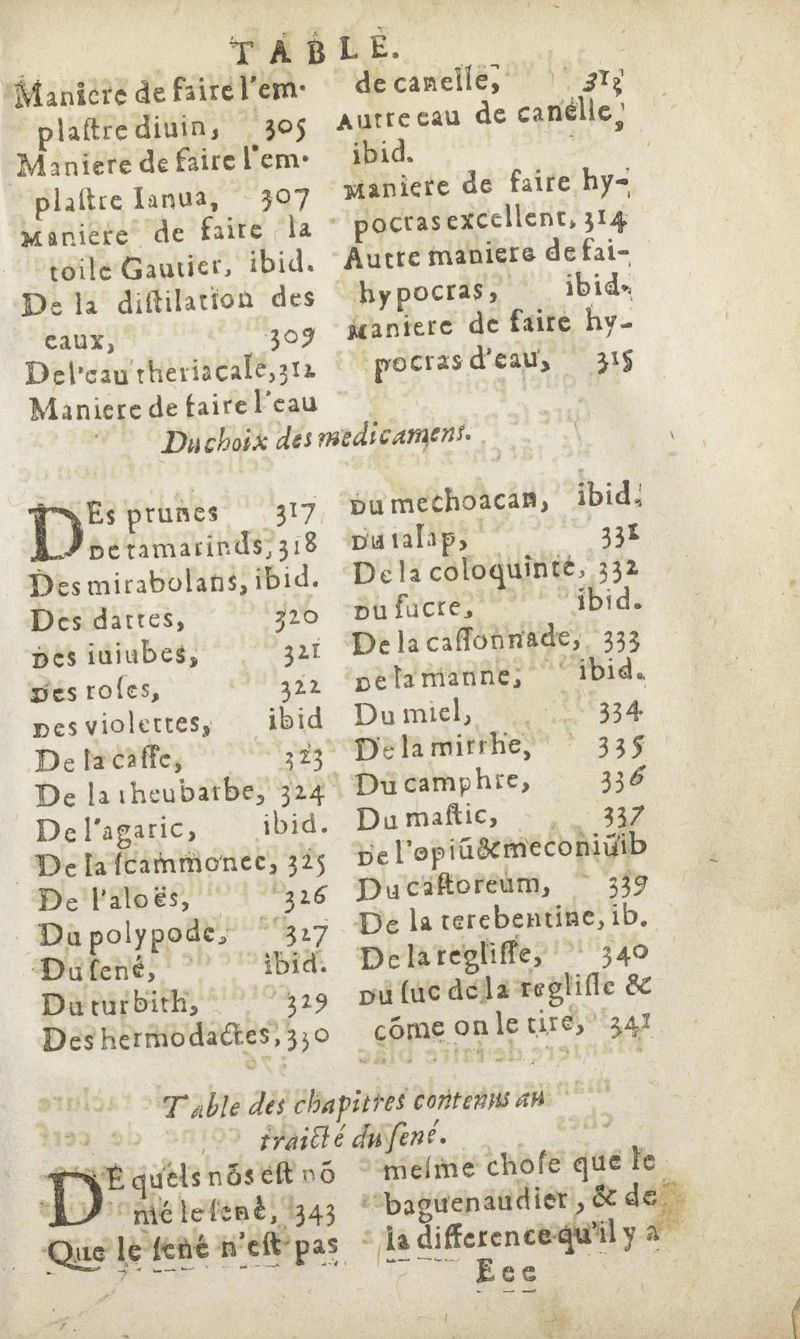 TABLE.
Maniere de faire l'em-
plaſtre diuin, 305
Maniere de faire l'em-
plaſtre Ianua, 307
Maniere de faire la
toile Gautier, ibid.
De la diſtilation des
eaux, 309
De l'eau theriacale, 312
Maniere de faire l'eau
de canelle,
Autre eau de canelle,
ibid.
Maniere de faire hy-
pocras excellent, 314
Autre maniere de fai-
hypocras, ibid.
Maniere de faire hy-
pocras d'eau, 315
Du choix des medicamens.
DEs prunes 317
De tamarinds, 318
Des mirabolans, ibid.
Des dattes, 320
Des iuiubes, 321
Des roſes, 322
Des violettes, ibid
De la caſſe, 323
De la rheubarbe, 324
De l'agaric, ibid.
De la ſcammonee, 325
De l'aloës, 326
Du polypode, 327
Du ſené, ibid.
Du turbith, 329
Des hermodactes, 330
Du mechoacan, ibid.
Du ialap, 331
De la coloquinte, 332
Du ſucre, ibid.
De la caſſonnade, 333
De la manne, ibid.
Du miel, 334
De la mirrhe, 335
Du camphre, 336
Du maſtic, 337
De l'opiū & meconiūib
Du caſtoreum, 339
De la terebentine, ib.
De la regliſſe, 340
Du ſuc de la regliſſe &
cōme on le tire, 341
Table des chapitres contenus au
traicté du ſené.
DE quels nōs eſt nō
mé le ſené, 343
Que le ſené n'eſt pas
meſme choſe que le
baguenaudier, & de
la difference qu'il y a
Eee